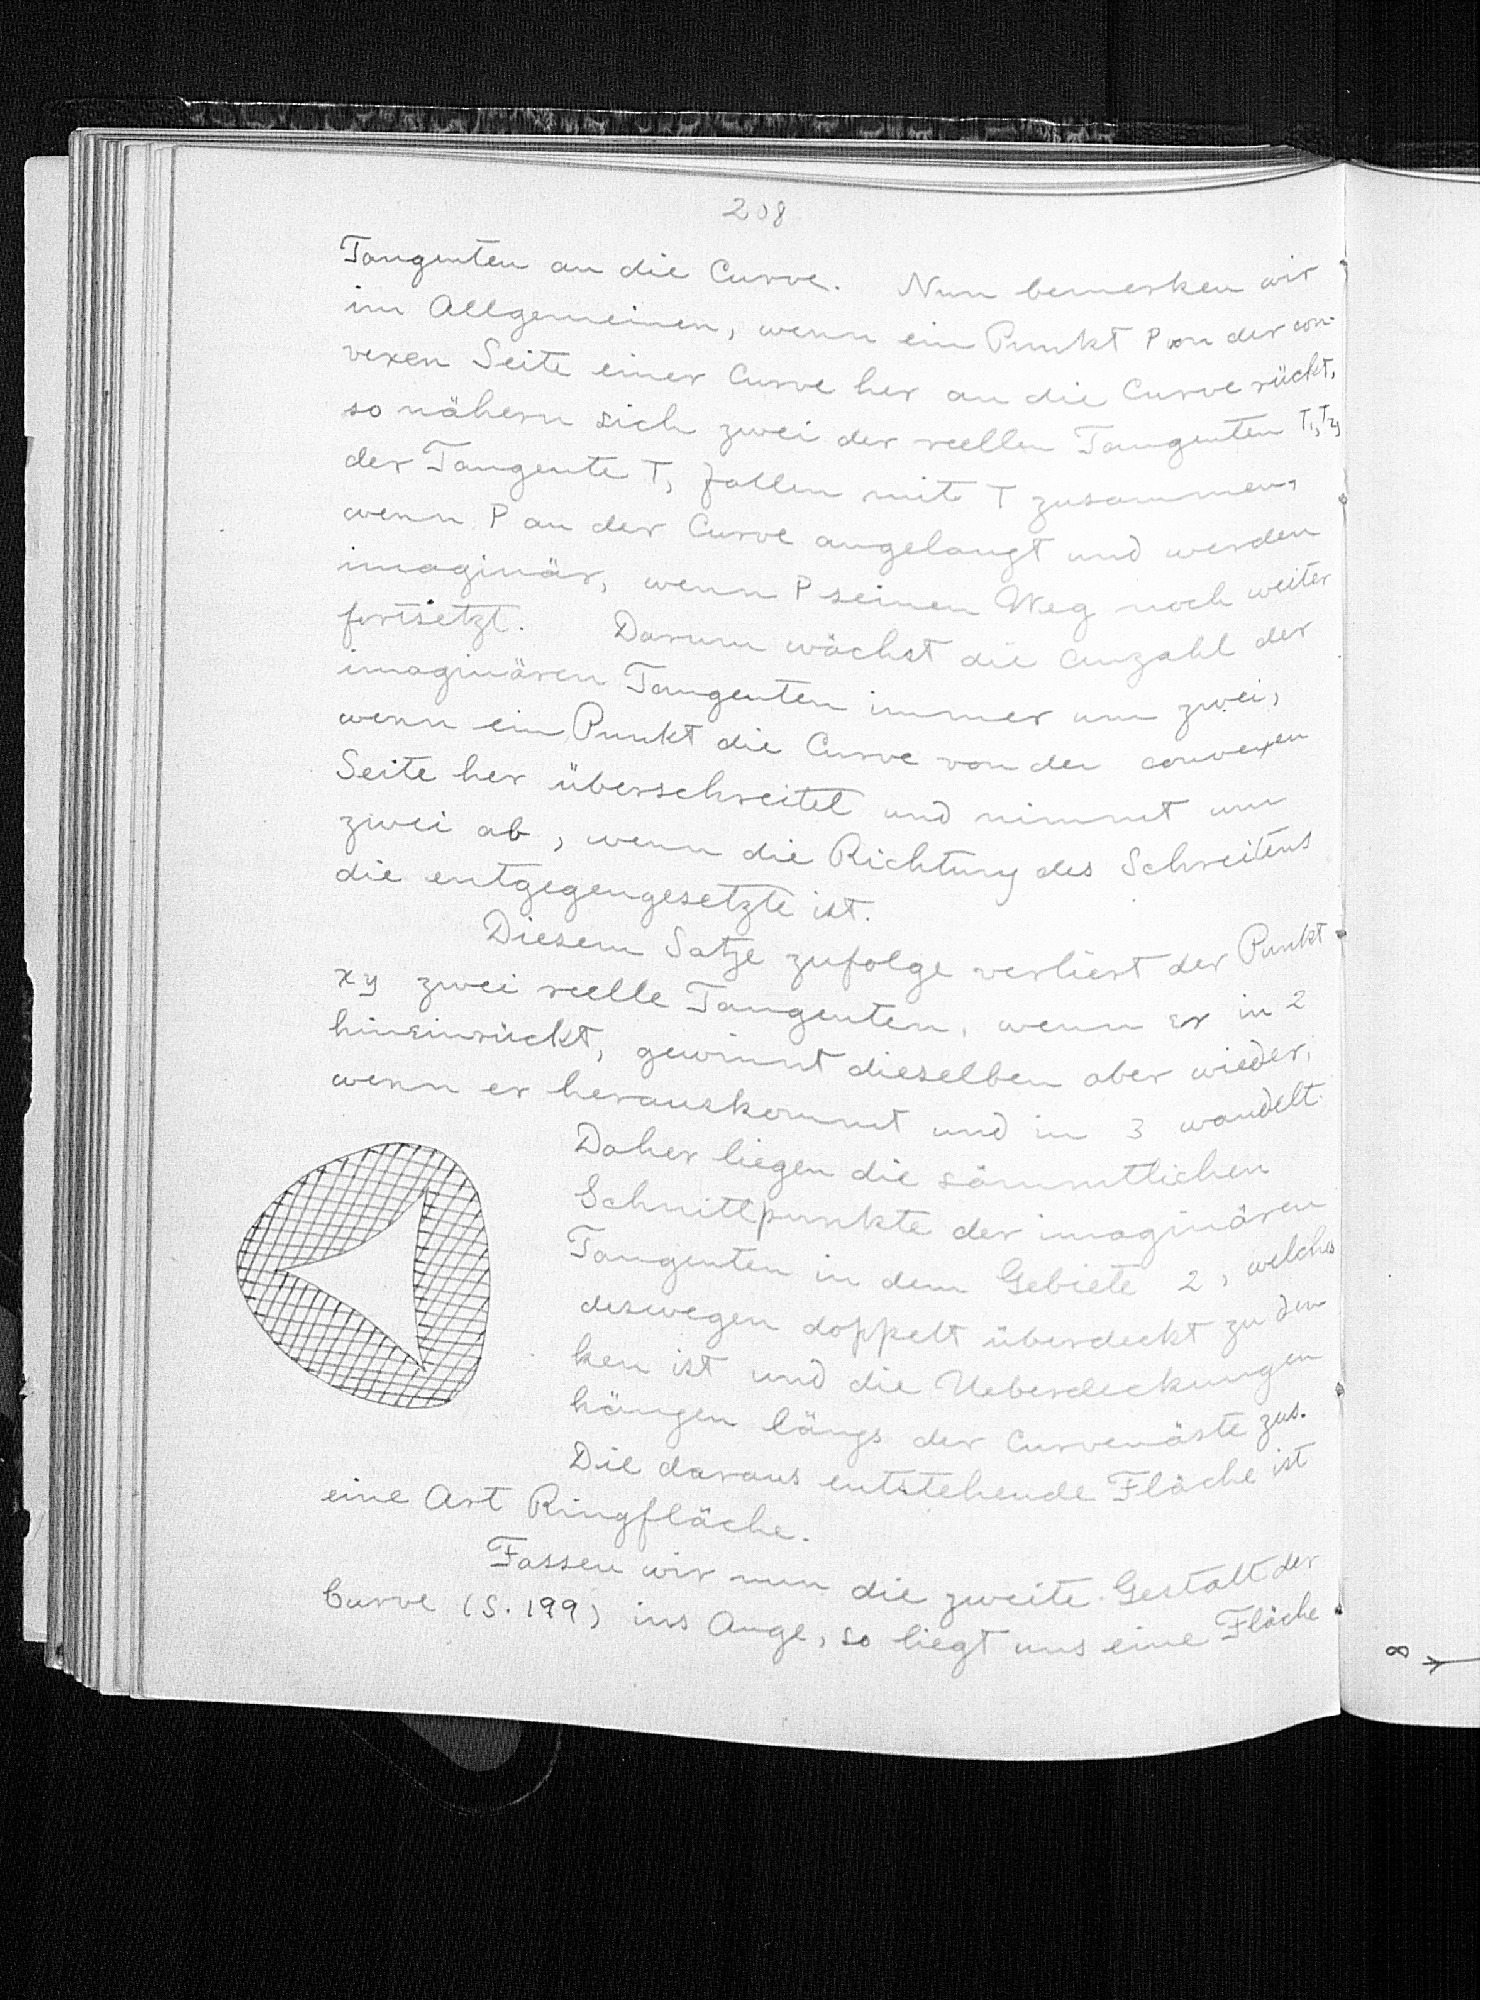 208
Tangenten an die Curve. Nun bemerken wir
im Allgemeinen, wenn ein Punkt P von der con-
vexen Seite einer Curve her an die Curve rückt,
so nähern sich zwei der reellen Tangenten T₁, T₂,
der Tangente T, fallen mit T zusammen,
wenn P an der Curve angelangt und werden
imaginär, wenn P seinen Weg noch weiter
fortsetzt. Darum wächst die Anzahl der
imaginären Tangenten immer um zwei,
wenn ein Punkt die Curve von der convexen
Seite her überschreitet und nimmt um
zwei ab, wenn die Richtung des Schreitens
die entgegengesetzte ist.
Diesem Satze zufolge verliert der Punkt
xy zwei reelle Tangenten, wenn er in 2
hineinrückt, gewinnt dieselben aber wieder,
wenn er herauskommt und in 3 wandelt.
Daher liegen die sämmtlichen
Schnittpunkte der imaginären
Tangenten in dem Gebiete 2, welches
deswegen doppelt überdeckt zu den
ken ist und die Ueberdeckungen
hängen längs der Curvenäste zus.
Die daraus entstehende Fläche ist
eine Art Ringfläche.
Fassen wir nun die zweite Gestalt der
Curve (S. 199) ins Auge, so liegt uns eine Fläche
∞